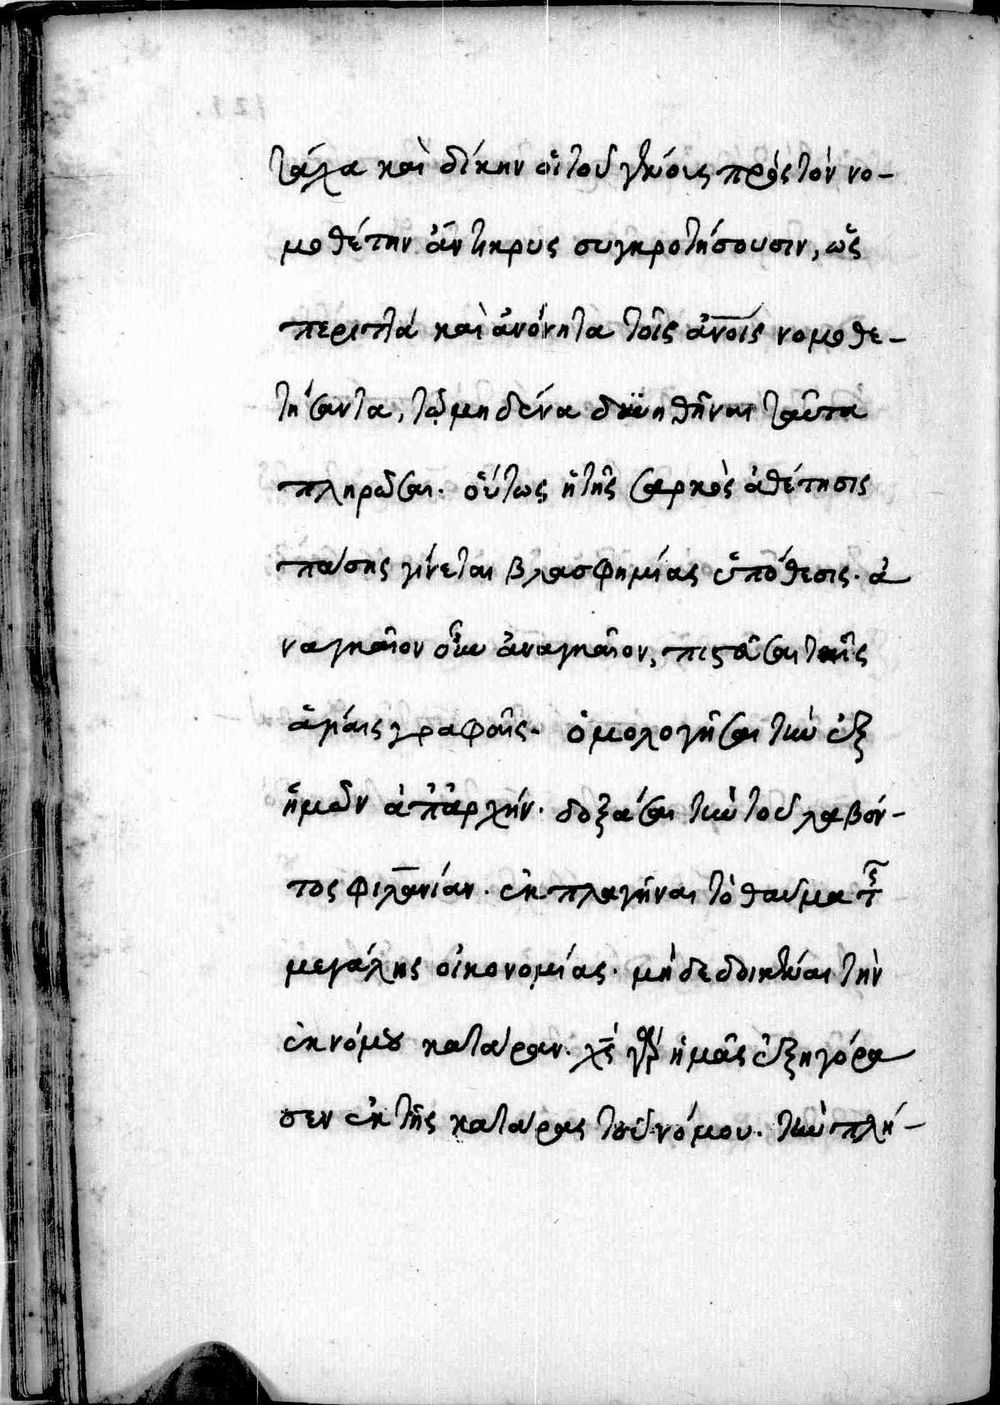 τάχα καὶ δίκην οἱ τοῦ γένους πρὸς τὸν νο-
μοθέτην ἄντικρυς συγκροτήσουσιν, ὡς
περιττὰ καὶ ἀνόνητα τοῖς ἀν̅οις νομοθε-
τήσαντα, τῷ μηδένα δυνηθῆναι ταῦτα
πληρῶσαι. οὕτως ἡ τῆς σαρκὸς ἀθέτησις
πάσης γίνεται βλασφημίας ὑπόθεσις. ἀ
ναγκαῖον οὖν ἀναγκαῖον, πιστεῦσαι ταῖς
ἁγίαις γραφαῖς. ὁμολογῆσαι τὴν ἐξ
ἡμῶν ἀπαρχήν. δοξάσαι τὴν τοῦ λαβόν-
τος φιλαν̅ίαν. ἐκπλαγῆναι τὸ θαῦμα τῆς
μεγάλης οἰκονομίας. μὴ δεδοικέναι τὴν
ἐκ νόμου κατάραν. χ̅ς γὰρ ἡμᾶς ἐξηγόρα
σεν ἐκ τῆς κατάρας τοῦ νόμου. τὴν πλή-